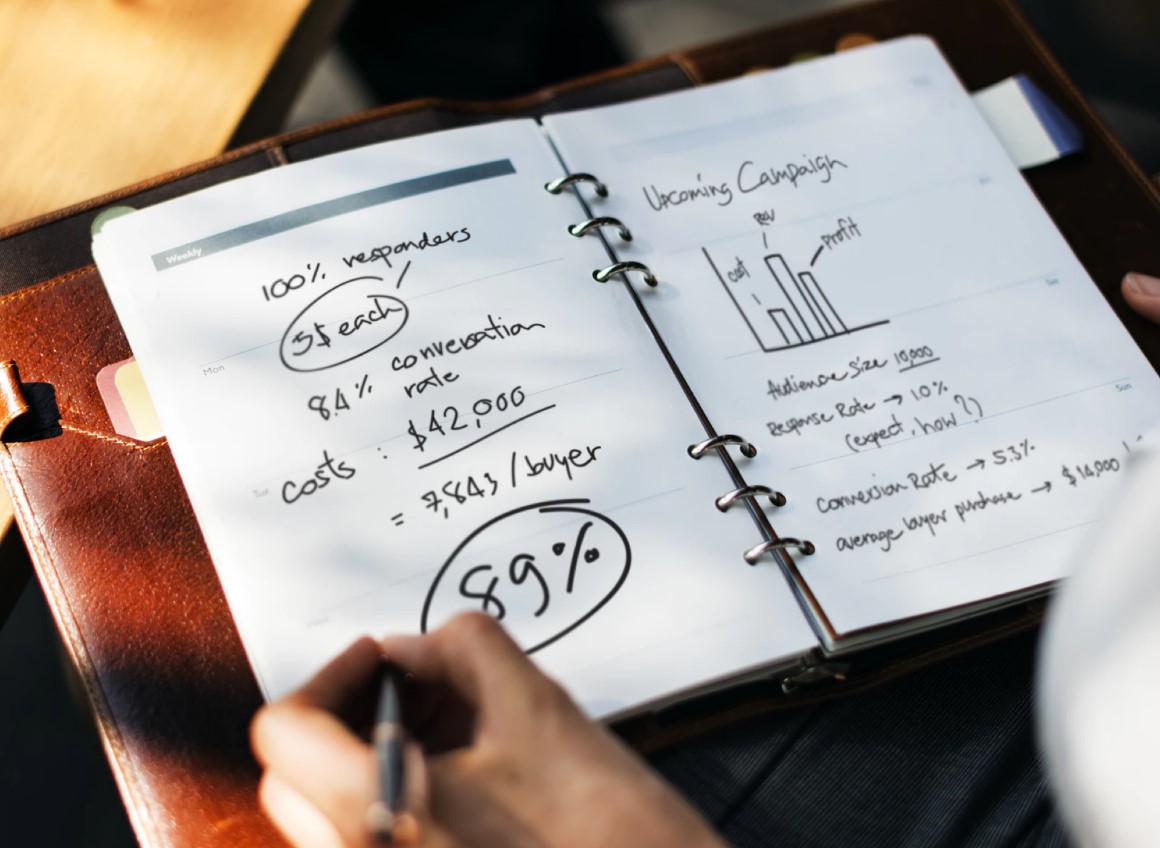 Weekly
100% responders
5$ each
Mon
8.4% conversation
rate
costs : $42,000
Tue
= 7,843 / buyer
89%
Upcoming Campaign
Rev
cost
profit
Audience Size 10,000
Response Rate → 1.0%
(expect, how?)
Sun
Conversion Rate → 5.3%
average buyer purchase → $14,000